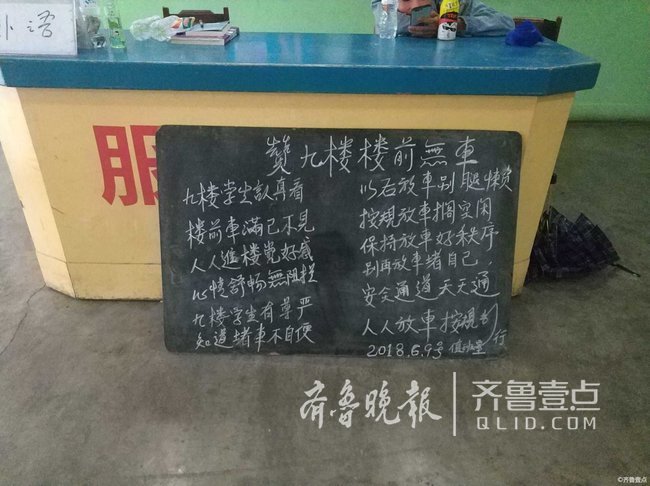 外语
服
赞九楼楼前無車
九楼学生認真看
楼前車滿已不見
人人進楼覚好感
心情舒畅無阻拦
九楼学生有尊严
知道堵車不自便
以后放車别腿懒
按規放車搁空闲
保持放車好秩序
别再放車堵自己.
安全通道天天通
人人放車按規行
2018.6.9号 值班室
齐鲁晚报
齐鲁壹点
QLID.COM
©齐鲁壹点